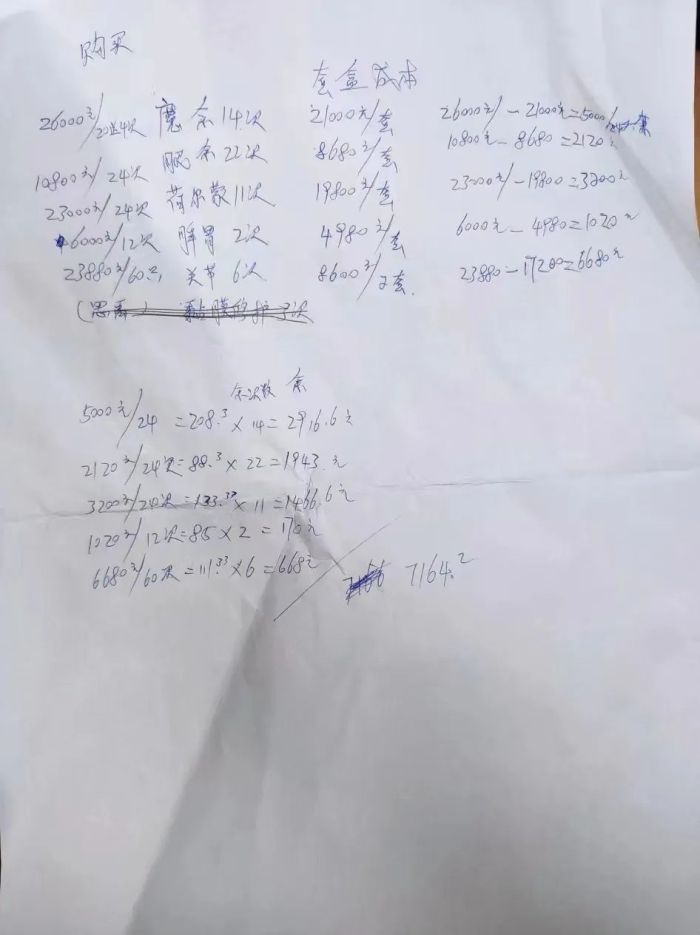 购买
套盒成本
26000元/20送4次 魔 余14次 21000元/套 26000元/-21000元=5000/24次
10800元/24次 服 余22次 8680元/套 10800元-8680=2120元
23000元/24次 荷尔蒙11次 19800元/套 23000元/-19800=3200元
6000元/12次 脾胃 2次 4980元/套 6000元-4980=1020元
23880元/60次 关节 6次 8600元/2套. 23880-17200=6680元
余次数 余
5000元/24 =208.3×14=2916.6元
2120元/24次=88.3×22=1943.元
3200元/24次=133.33×11=1466.6元
1020元/12次=85×2=170元
6680元/60次=111.33×6=668元
7164.2